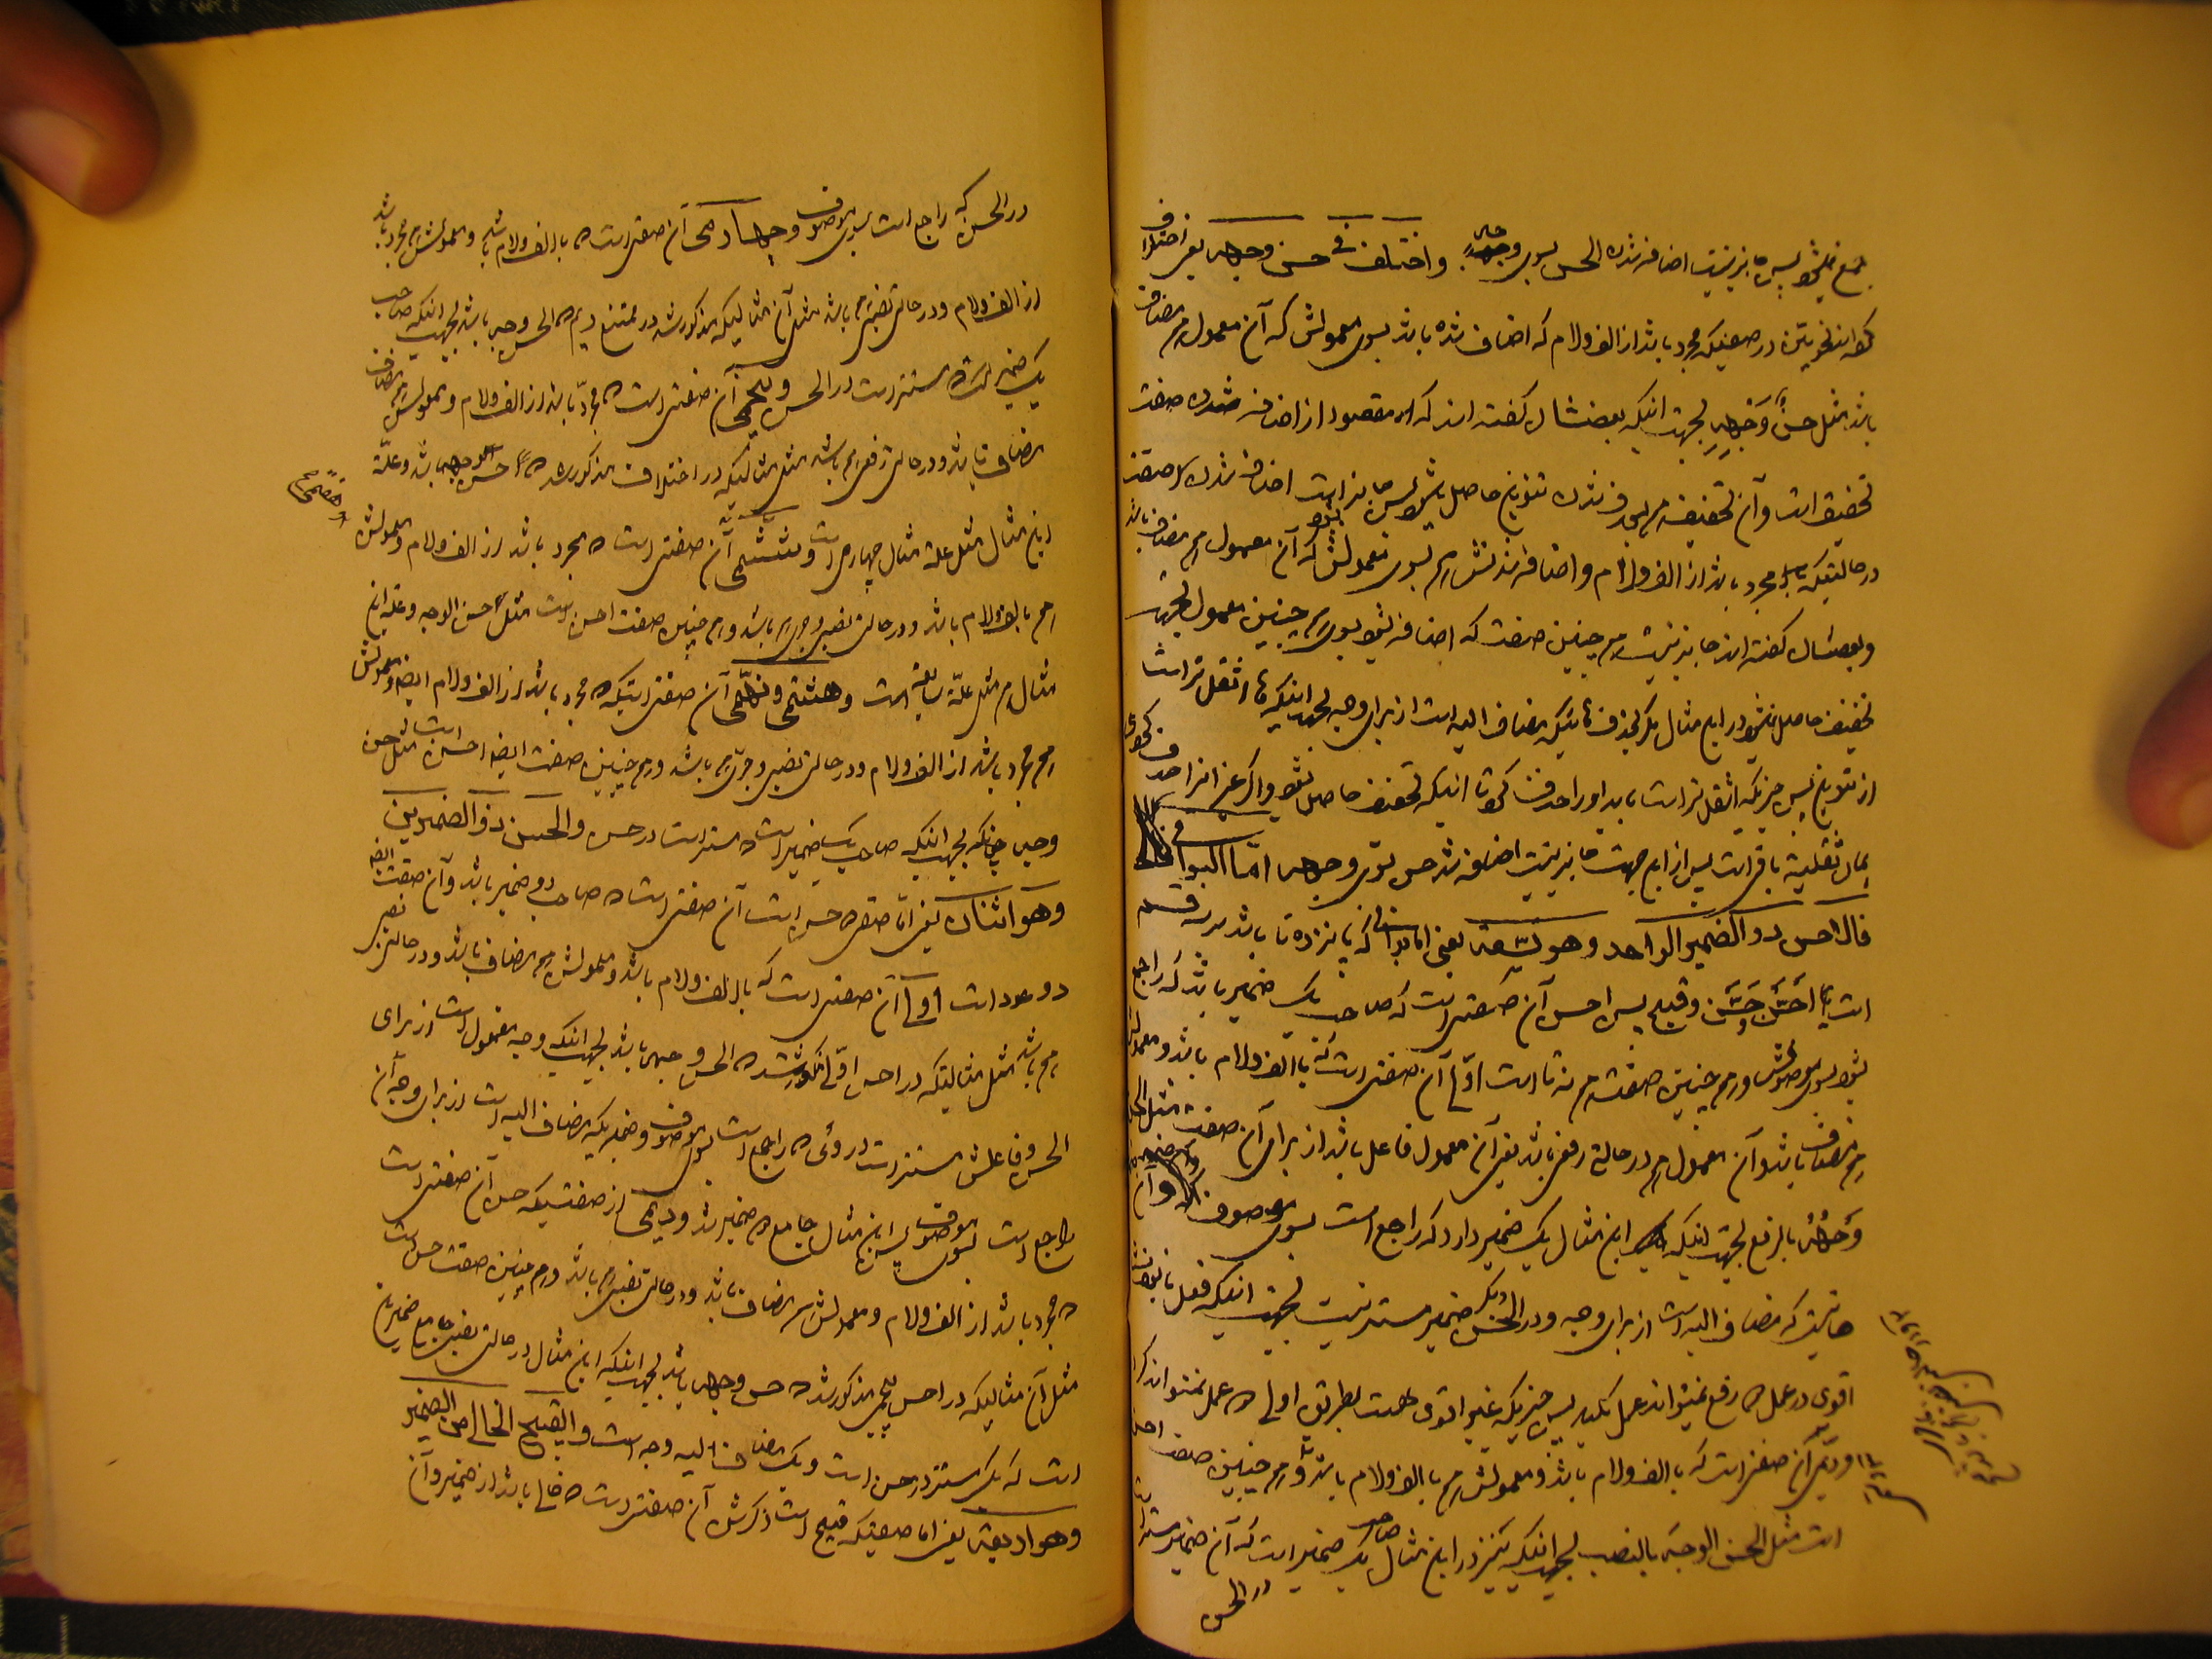 جمع نمیشود پس جایز نیست اضافه شدن الحسن بسوی وجه واختلف فی حسن وجهه یعنی اختلاف
کرده‌اند نحویین در صفتیکه مجرد باشد از الف ولام که اضاف شده باشد بسوی معمولش که آن معمول هم مضاف
باشد مثل حسن وجهه بجهت آنکه بعضشان گفته اند که مقصود از اضافه شدن صفت
تخفیف است وآن تخفیف هم بحذف شدن تنوین حاصل میشود پس جایز است اضافه شدن صفت
در حالتیکه مجرد باشد از الف ولام واضافه شدنش هم بسوی معمولش که آن معمول هم مضاف باشد
وبعضشان گفته اند جایز نیست هم چنین صفت که اضافه شود بسوی هم چنین معمول بجهت
تخفیف حاصل نمیشود در این مثال مگر بحذف هائیکه مضاف الیه است از برای وجه بجهت آنکه ها اثقل تر است
از تنوین پس چیزیکه اثقل تر است باید او را حذف کنی تا اینکه تخفیف حاصل شود واگر غیر از حذف کنی
بحال ثقلیة باقی است پس از این جهت جایز نیست اضافه شدن حسن بسوی وجهه امّا البواقی
فالاحسن ذو الضمیر الواحد وهو تسعة یعنی اما بواقی که پانزده تا باشد بر سه قسم
است یا احسن و حسن وقبیح پس احسن آن صفتی است که صاحب یک ضمیر باشد که راجع
شود بسوی موصوفش وهم چنین صفت هم نه تا است اوّل آن صفتی است که با الف ولام باشد ومعمولش
هم مضاف باشد وآن معمول هم در حالة رفعی باشد یعنی آن معمول فاعل باشد از برای آن صفت مثل الحسن
وجهُهُ بالرفع بجهت آنکه این مثال یک ضمیر دارد که راجع است بسوی موصوف وآن
هائیست که مضاف الیه است از برای وجه ودر الحسن دیگر ضمیر مستتر نیست بجهت آنکه فعل
اقوی در عمل دو رفع نمیتواند عمل بکند پس چیزیکه غیر اقوی هست بطریق اولی دو عمل نمیتواند کرد
ودیّم آن صفتی است که با الف ولام باشد ومعمولش هم با الف ولام باشد وهم چنین صفت احسن
است مثل الحسن الوجهَ بالنصب بجهت آنکه نیز در این مثال صاحب یک ضمیر است که آن ضمیر مستتر است
در الحسن
در الحسن که راجع است بسوی موصوف وچهارمی آن صفتی است که با الف ولام باشد ومعمولش هم مجرد باشد
از الف ولام ودر حالت نصبی هم باشد مثل آن مثالیکه مذکور شد در ممتنع دیّم که الحسن وجه باشد بجهت آنکه صاحب
یک ضمیر است که مستتر است در الحسن وپنجمی آن صفتی است که مجرد باشد از الف ولام ومعمولش هم مضاف
مضاف باشد ودر حالت رفعی هم باشد مثل مثالیکه در اختلاف مذکور شد که حسن وجهه باشد وعلّة
این مثال مثل علة مثال چهارمی است وششمی آن صفتی است که مجرد باشد از الف ولام ومعمولش
هم با الف ولام باشد ودر حالت نصبی وجری هم باشد وهم چنین صفت احسن است مثل حسن الوجه وعلة این
مثال هم مثل علّة سابقی است وهشتمی ونهمی آن صفتی استکه مجرد باشد از الف ولام ایضا ومعمولش
هم مجرد باشد از الف ولام ودر حالت نصبی وجری هم باشد وهم چنین صفت ایضا احسن است مثل حسن
وجه چونکه بجهت آنکه صاحب یک ضمیر است که مستتر است در حسن والحسن ذو الضمیرین
وهو اثنان یعنی امّا صفتی که حسن است آن صفتی است که صاحب دو ضمیر باشد وآن صفت ایضا
دو عدد است اوّل آن صفتی است که با الف ولام باشد ومعمولش هم مضاف باشد ودر حالت نصبی
هم باشد مثل مثالیکه در احسن اوّل مذکور شد که الحسن وجهه باشد بجهت آنکه وجه مفعول است از برای
الحسن وفاعلش مستتر است در وی که راجع است بسوی موصوف وضمیریکه مضاف الیه است از برای وجه آن
راجع است بسوی موصوف پس این مثال جامع دو ضمیر شد ودیمی از صفتیکه حسن آن صفتی است
که مجرد باشد از الف ولام ومعمولش هم مضاف باشد ودر حالت نصبی هم باشد وهم چنین صفت حسن است
مثل آن مثالیکه در احسن پنجمی مذکور شد که حسن وجهه باشد بجهت آنکه این مثال در حالت نصبی جامع ضمیرین
است که یک مستتر در حسن است ویک مضاف الیه وجه است والقبیح الخالی من الضمیر
وهو اربعة یعنی اما صفتیکه قبیح است ذکرش آن صفتی است که خالی باشد از ضمیر وآن